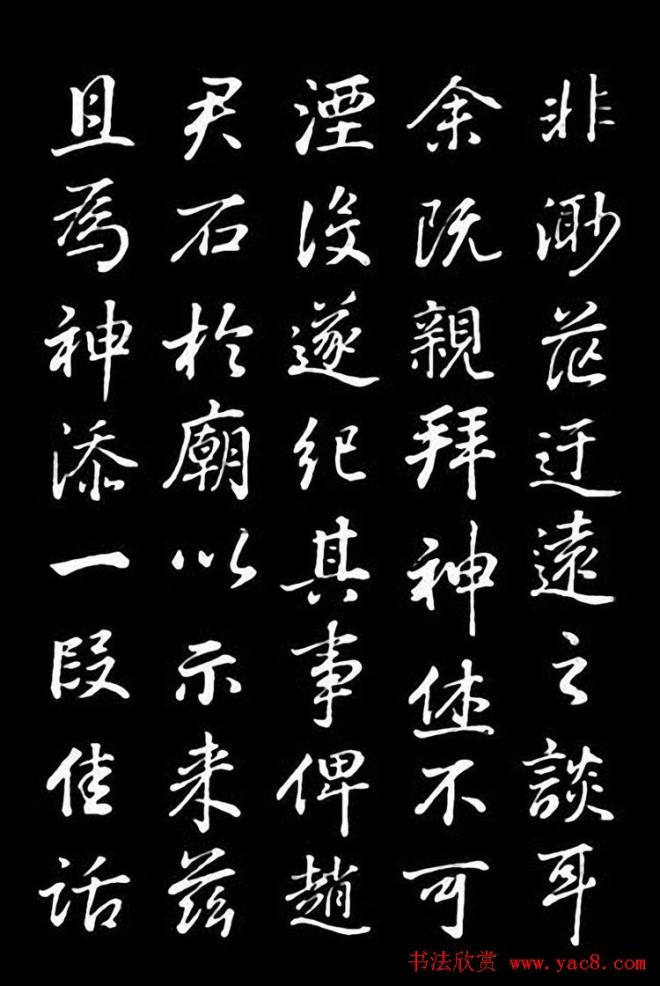 非渺茫迂遠之談耳
余既親拜神休不可
湮没遂紀其事俾趙
君石於廟以示来兹
且為神添一段佳話
书法欣赏 www.yac8.com